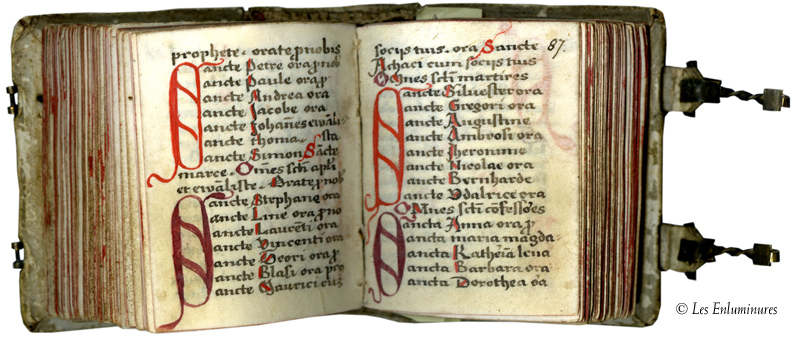 prophete. orate p nobis
Sancte Petre ora p nob
ancte Paule ora p
ancte Andrea ora
ancte Jacobe ora
ancte Johãnes ewãlis
ancte Thoma. sta
ancte Simon. Sãcte
marce. Omẽs scti apli
et ewãliste. Orate p nob
Sancte Stephane ora
ancte Line ora p no
ancte Laurẽti ora
ancte Vincenti ora
ancte Geori ora p
ancte Blasi ora pro
ancte Maurici cũ
socijs tuis. ora Sancte 87.
Achaci cum socijs tuis
Omnes scti martires
Sancte Siluester ora
ancte Gregori ora
ancte Augustine
ancte Ambrosi ora
ancte Jheronime
ancte Nicolae ora
ancte Bernharde
ancte Vdalrice ora
Omnes scti cõfessões
Sancta Anna ora p
ancta maria magda
ancta Katherina lena
ancta Barbara ora
ancta Dorothea oa
© Les Enluminures